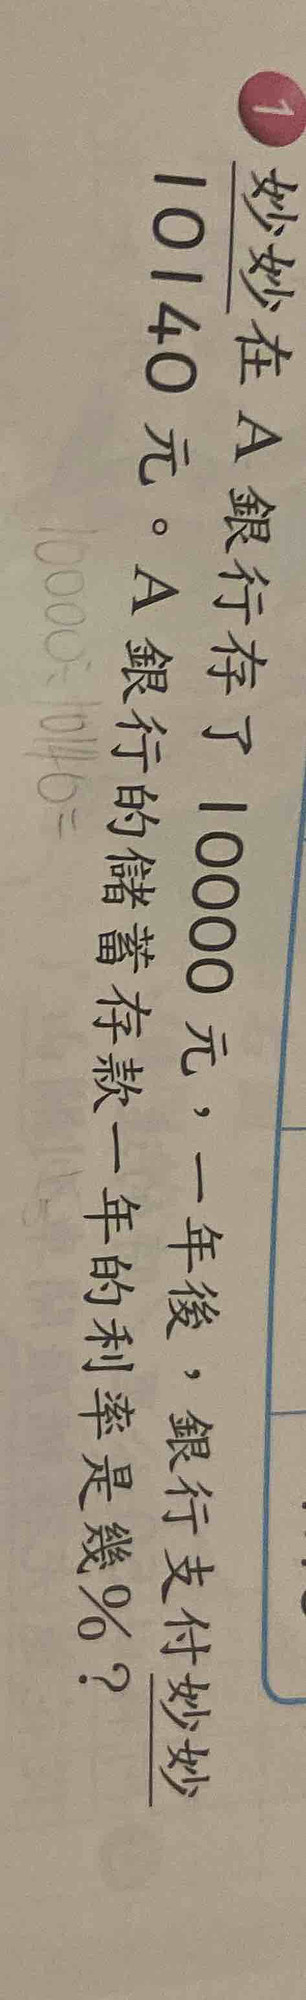 1 妙妙在 A 銀行存了 10000 元，一年後，銀行支付妙妙
10140 元。A 銀行的儲蓄存款一年的利率是幾%？
10000÷10140=